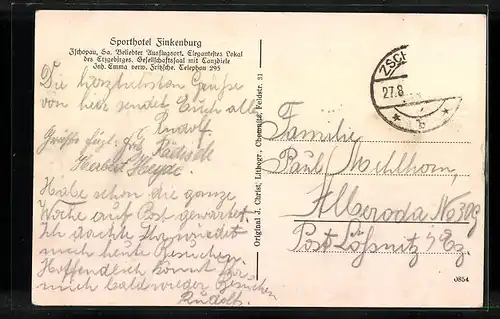 Sporthotel Finkenburg
Zschopau, Sa. Beliebter Ausflugsort. Elegantestes Lokal
des Erzgebirges. Gesellschaftssaal mit Tanzdiele
Inh. Emma verw. Fritzsche. Telephon 295
Die herzlichsten Grüße
von hier sendet Euch alle
Rudolf.
Herbert Heyde.
Habe schon die ganze
Woche auf Post gewartet.
Ich dachte Ihr würdet
mich heute besuchen.
Hoffendlich kommt Ihr
mich bald wieder besuchen
Rudolf.
Original J. Christ, Lithogr., Chemnitz, Feldstr. 31
ZSCH
27.8
* b *
Familie
Paul Mehlhorn,
Alberoda No 30
Post Lößnitz i/Ez.
0854